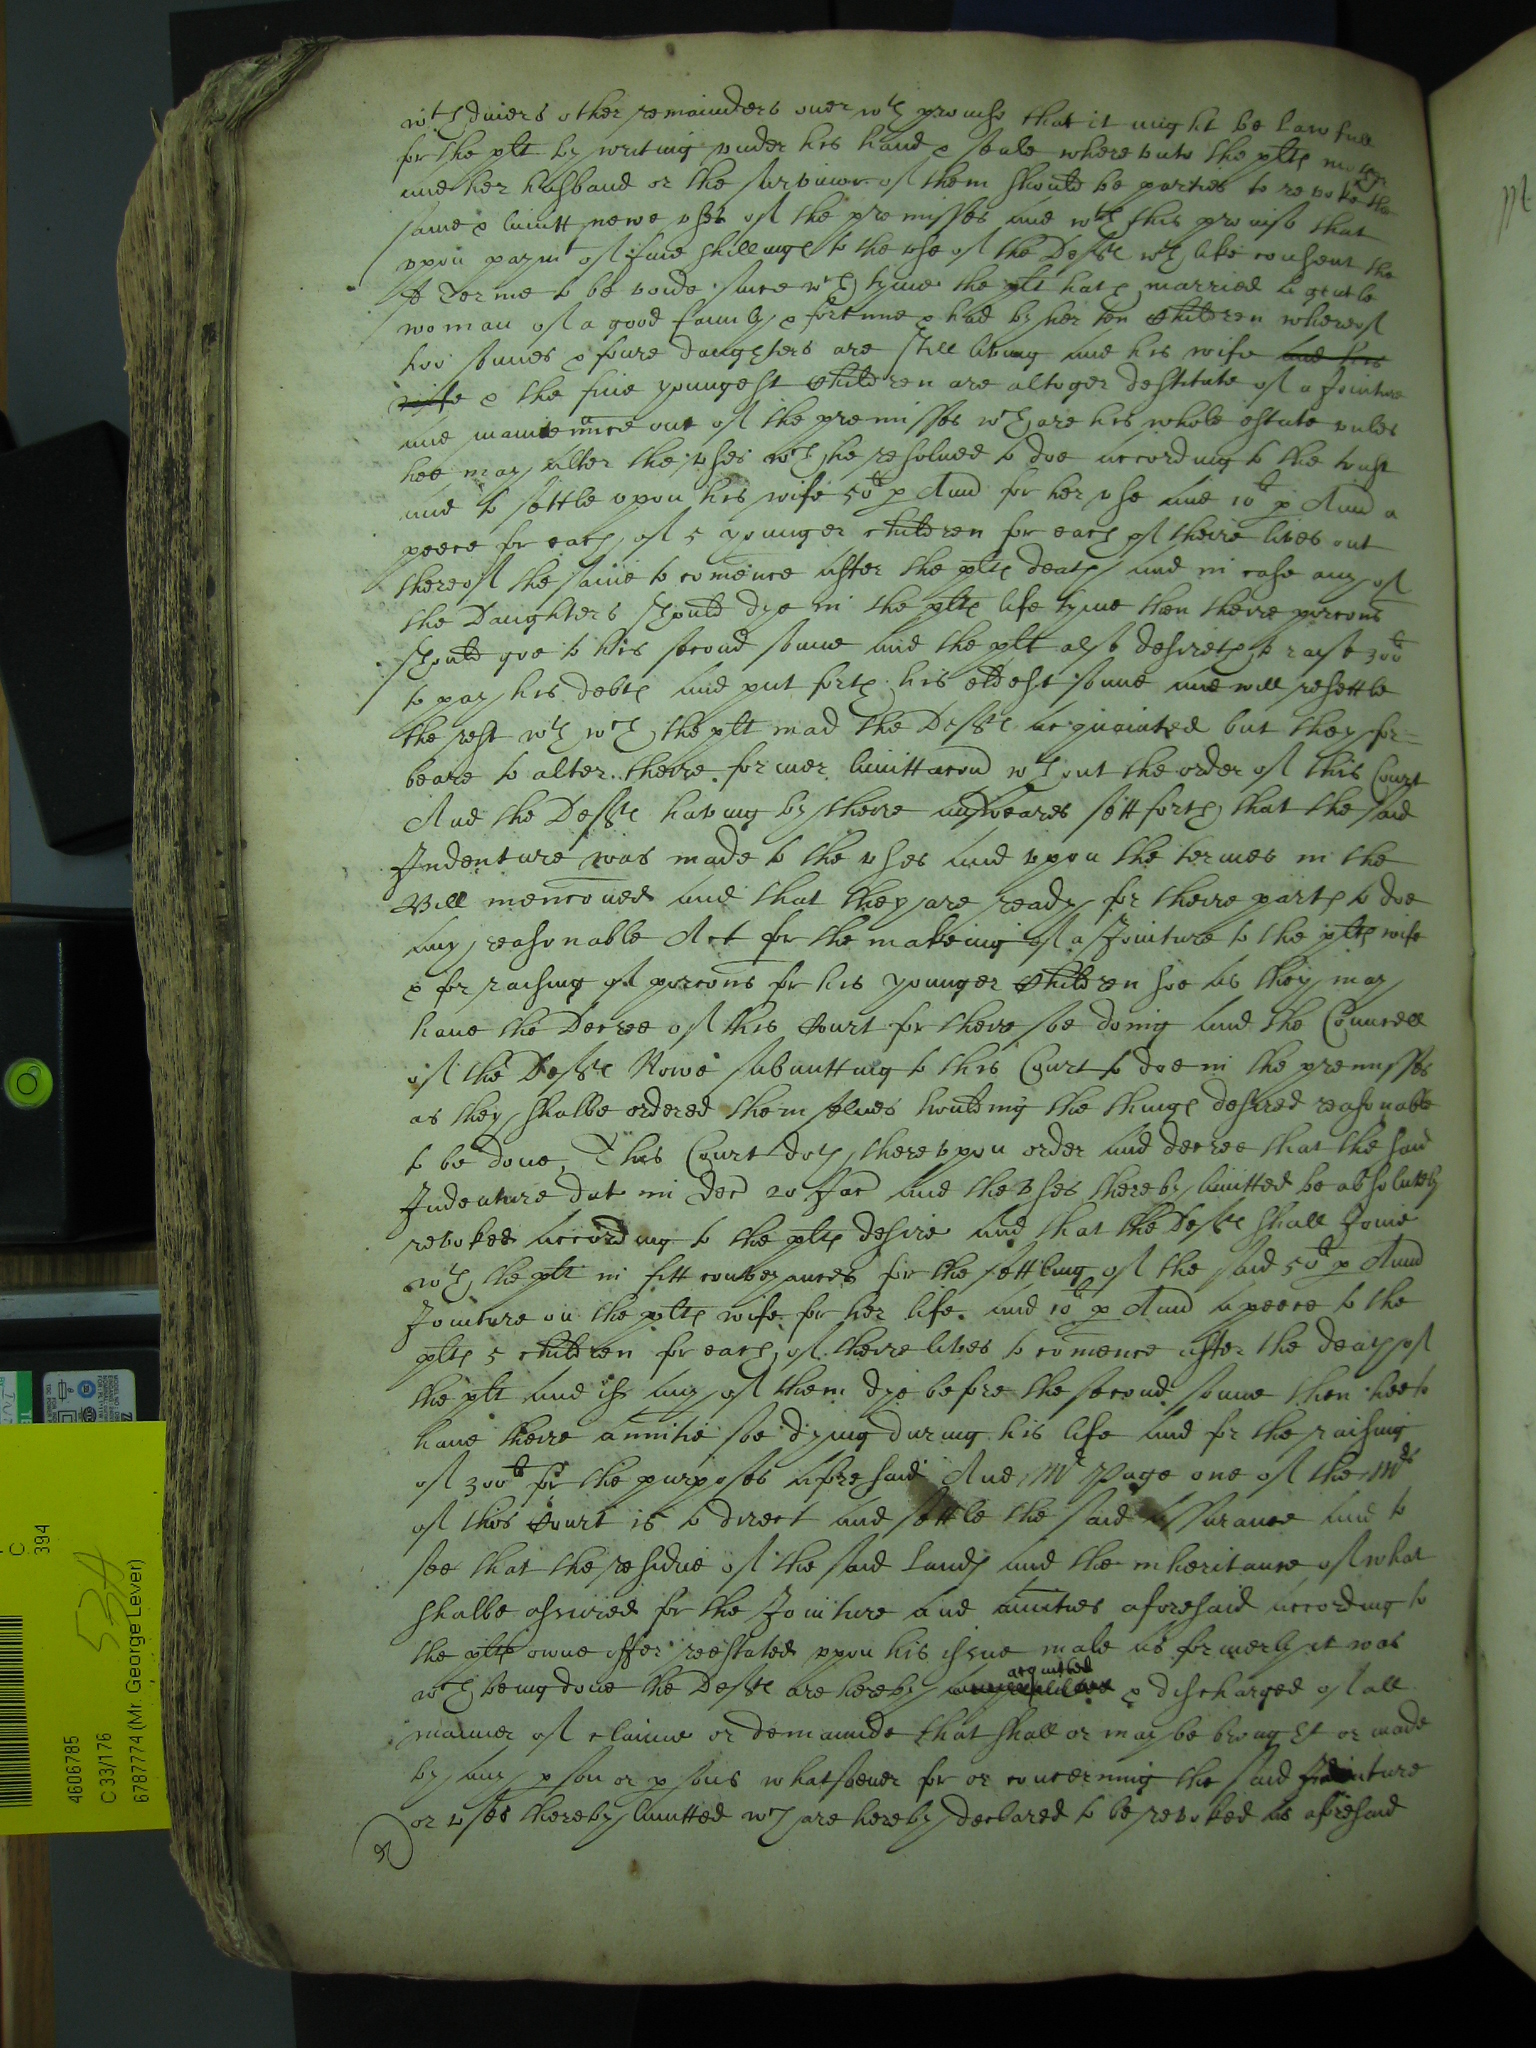 wth divers other remainders over wth provise that it might be lawfull
for the plt by writing under his hand & seale whereunto the plts mother
and her husband or the survivor of them should be parties to revoke the
same & limitt newe uses of the premisses and wth this proviso that
upon paymt of five shillings to the use of the Defts wth like consent the
sd Terme to be voide since wch tyme the plt hath married a gentle
woman of a good family & fortune & had by her ten children whereof
two sonnes & foure daughters are still living and his wife and his
wife & the five youngest children are altoger destitute of a Jointure
and maintennce out of the premisses wch are his whole estate unles
hee may alter the uses wch he resolved to doe according to the trust
and to settle upon his wife 50li p Annd for her use and 10li p Annd a
peece for each of 5 younger children for each of theire lives out
thereof the same to comence after the plts death and in case any of
the Daughters should dye in the plts life tyme then theire porcons
should goe to his second sonne and the plt also desireth to raise 300li
to pay his debts and put forth his eldest sonne and will resettle
the rest wth wch the plt mad the Defts acquainted but they for=
beare to alter theire former limittacon wthout the order of this Court
And the Defts having by theire answeares sett forth that the said
Indenture was made to the uses and upon the termes in the
Bill menconed and that they are ready for theire parts to doe
any reasonable Act for the makeing of a Jointure to the plts wife
& for raising of porcons for his younger children soe as they may
have the Decree of this Court for theire soe doing and the Councell
of the Defts Rowe submitting to this Court to doe in the premisses
as they shalbe ordered themselves houlding the things desired reasonable
to be done, This Court doth thereupon order and decree that the said
Indenture dat in Dec 20 Jac and the uses thereby limitted be absolutely
revoked according to the plts desire and that the Defts shall Joine
wth the plt in fitt conveyances for the settling of the said 50li p Annd
Jointure on the plts wife for her life and 10li p Annd apeece to the
plts 5 children for each of theire lives to comence after the death of
the plt and if any of them dye before the second sonne then hee to
have theire annitie soe dying during his life and for the raising
of 300li for the purposes aforesaid And Mr Page one of the Mrs
of this Court is to direct and settle the said assurance and to
see that the residue of the said lands and the inheritance of what
shalbe assured for the Jointure and annities aforesaid according to
the plts owne offer reestated upon his issue male as formerly it was
wch being done the Defts are hereby acquitted & discharged of all
manner of claime or demaunde that shall or may be brought or made
by any pson or psons whatsoever for or concerning the said Indenture
or uses thereby limitted wch are hereby declared to be revoked as aforesaid
C
394
53A
4606785
C 33/176
6787774 (Mr. George Lever)